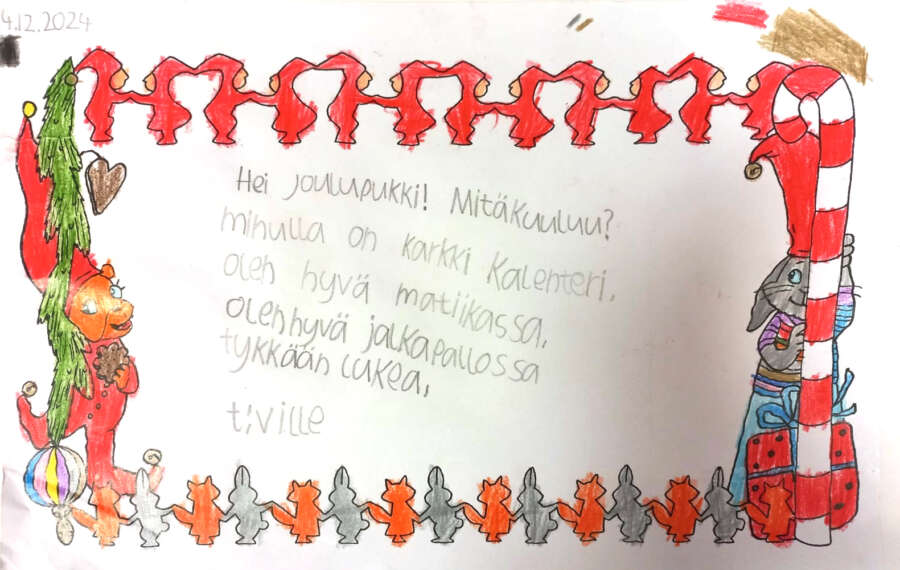 4.12.2024
Hei joulupukki! Mitäkuuluu?
minulla on karkki Kalenteri,
olen hyvä matiikassa,
olenhyvä jalkapallossa
tykkään lukea,
t;ville